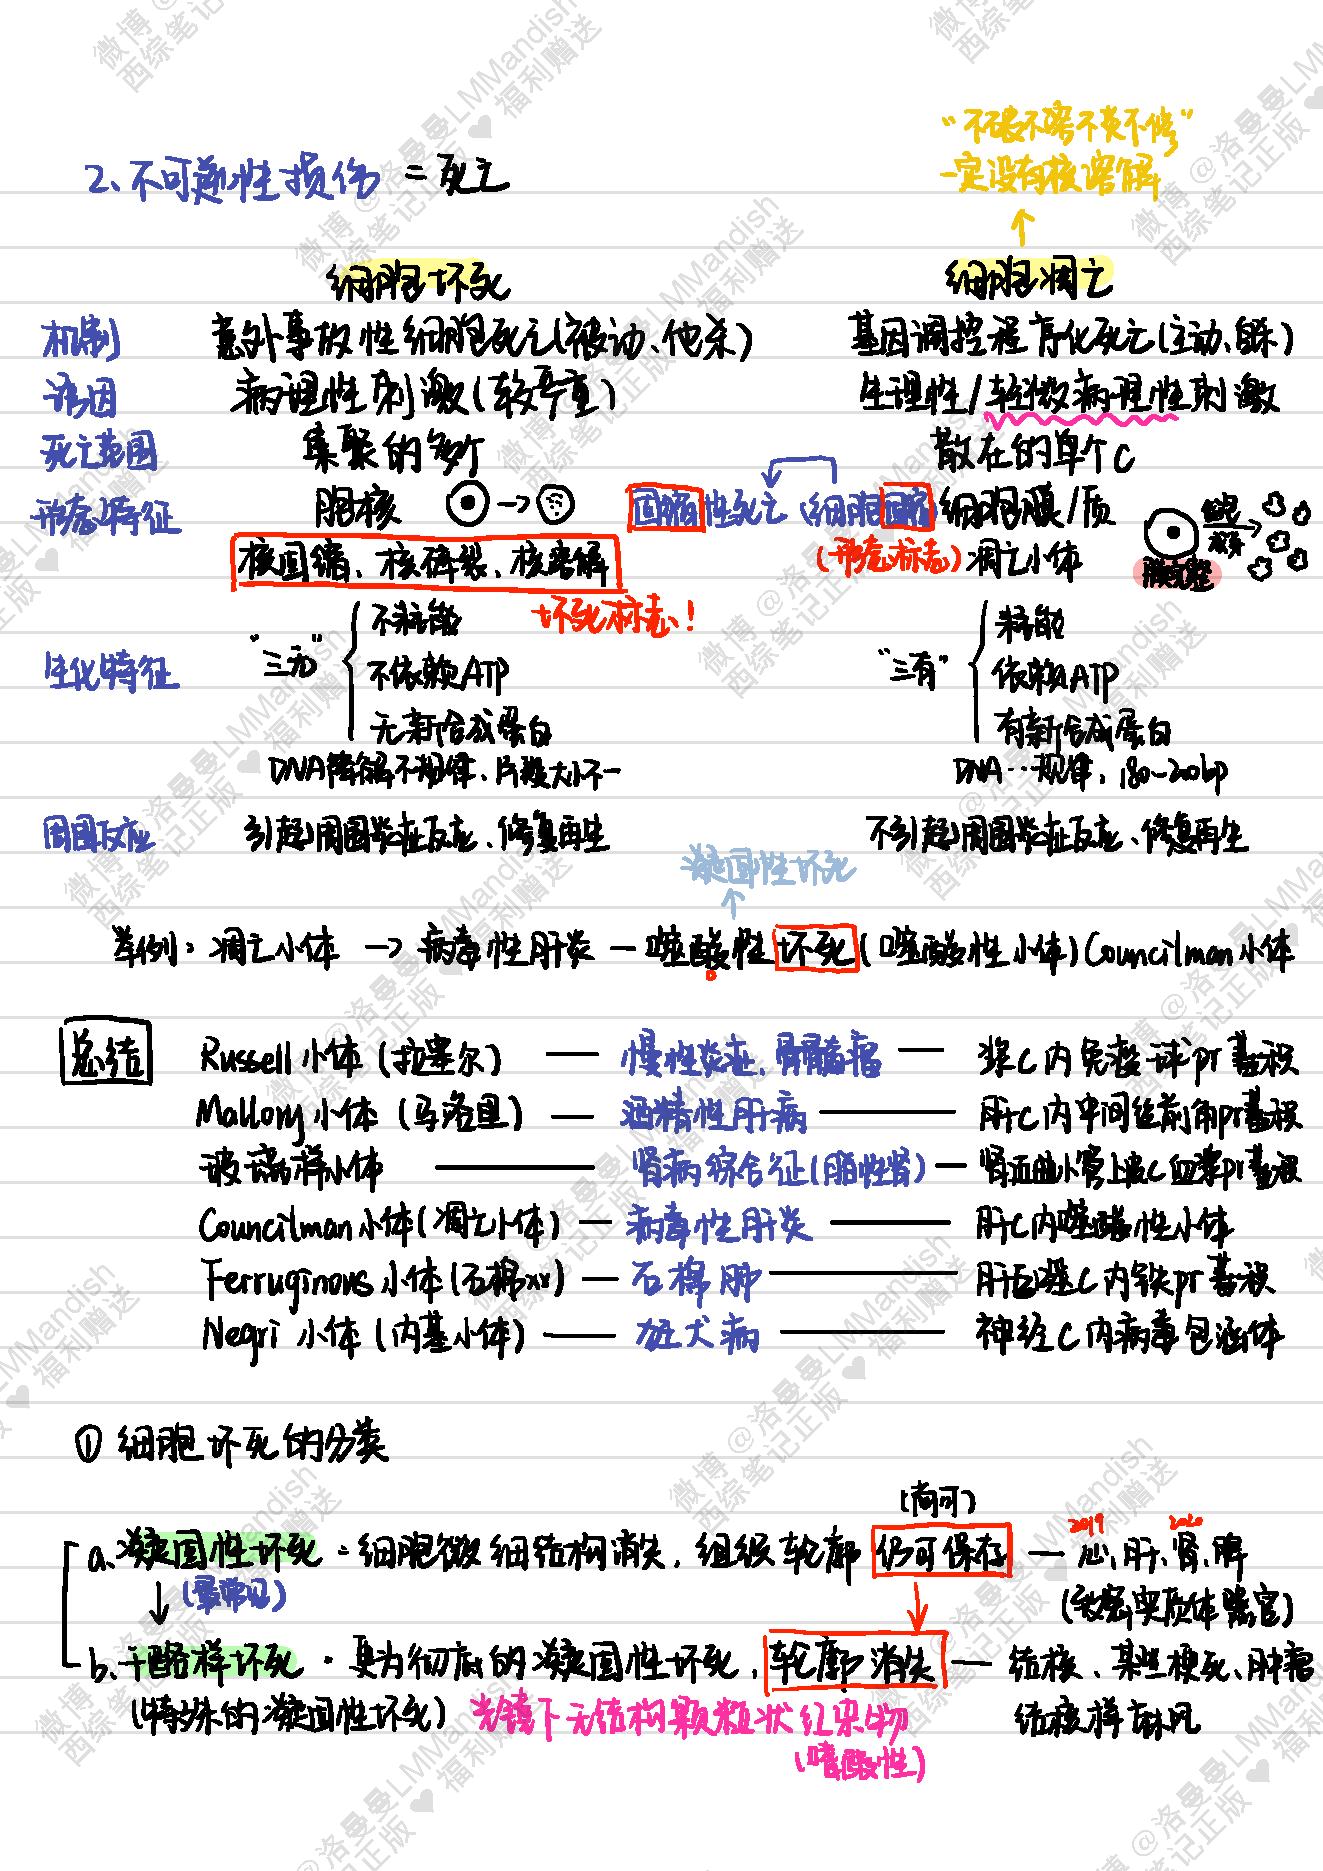 “不破不溶不炎不修”
2、不可逆性损伤 = 死亡
一定没有核溶解
细胞坏死 细胞凋亡
机制 意外事故性细胞死亡(被动、他杀) 基因调控程序化死亡(主动、自杀)
诱因 病理性刺激(较严重) 生理性/轻微病理性刺激
死亡范围 集聚的多个 散在的单个C
形态特征 胞核 固缩性死亡 (细胞固缩) 细胞膜/质
核固缩、核碎裂、核溶解 (形态标志) 凋亡小体 膜完整
坏死标志!
生化特征 “三无” 不耗能 “三有” 耗能
不依赖ATP 依赖ATP
无新合成蛋白 有新合成蛋白
DNA降解不规律、片段大小不一 DNA…规律, 180~200bp
周围反应 引起周围炎症反应、修复再生 不引起周围炎症反应、修复再生
凝固性坏死
举例: 凋亡小体 → 病毒性肝炎 — 嗜酸性坏死(嗜酸性小体) Councilman小体
总结 Russell小体(拉塞尔) — 慢性炎症、骨髓瘤 — 浆C内免疫球pr蓄积
Mallory小体(马洛里) — 酒精性肝病 — 肝C内中间丝前角pr蓄积
玻璃样小体 — 肾病综合征(脂性肾) — 肾近曲小管上皮C血浆pr蓄积
Councilman小体(凋亡小体) — 病毒性肝炎 — 肝C内嗜酸性小体
Ferruginous小体(石棉xx) — 石棉肺 — 肺巨噬C内铁pr蓄积
Negri小体(内基小体) — 狂犬病 — 神经C内病毒包涵体
① 细胞坏死的分类
(尚可)
2019 2020
a.凝固性坏死:细胞微细结构消失,组织轮廓仍可保存 — 心、肝、肾、脾
(最常见) (致密实质体器官)
b.干酪样坏死:更为彻底的凝固性坏死,轮廓消失 — 结核、某些梗死、肿瘤
(特殊的凝固性坏死) 光镜下无结构颗粒状红染物 结核样麻风
(嗜酸性)
微博@洛曼曼LMMandish
西综笔记正版♥福利赠送